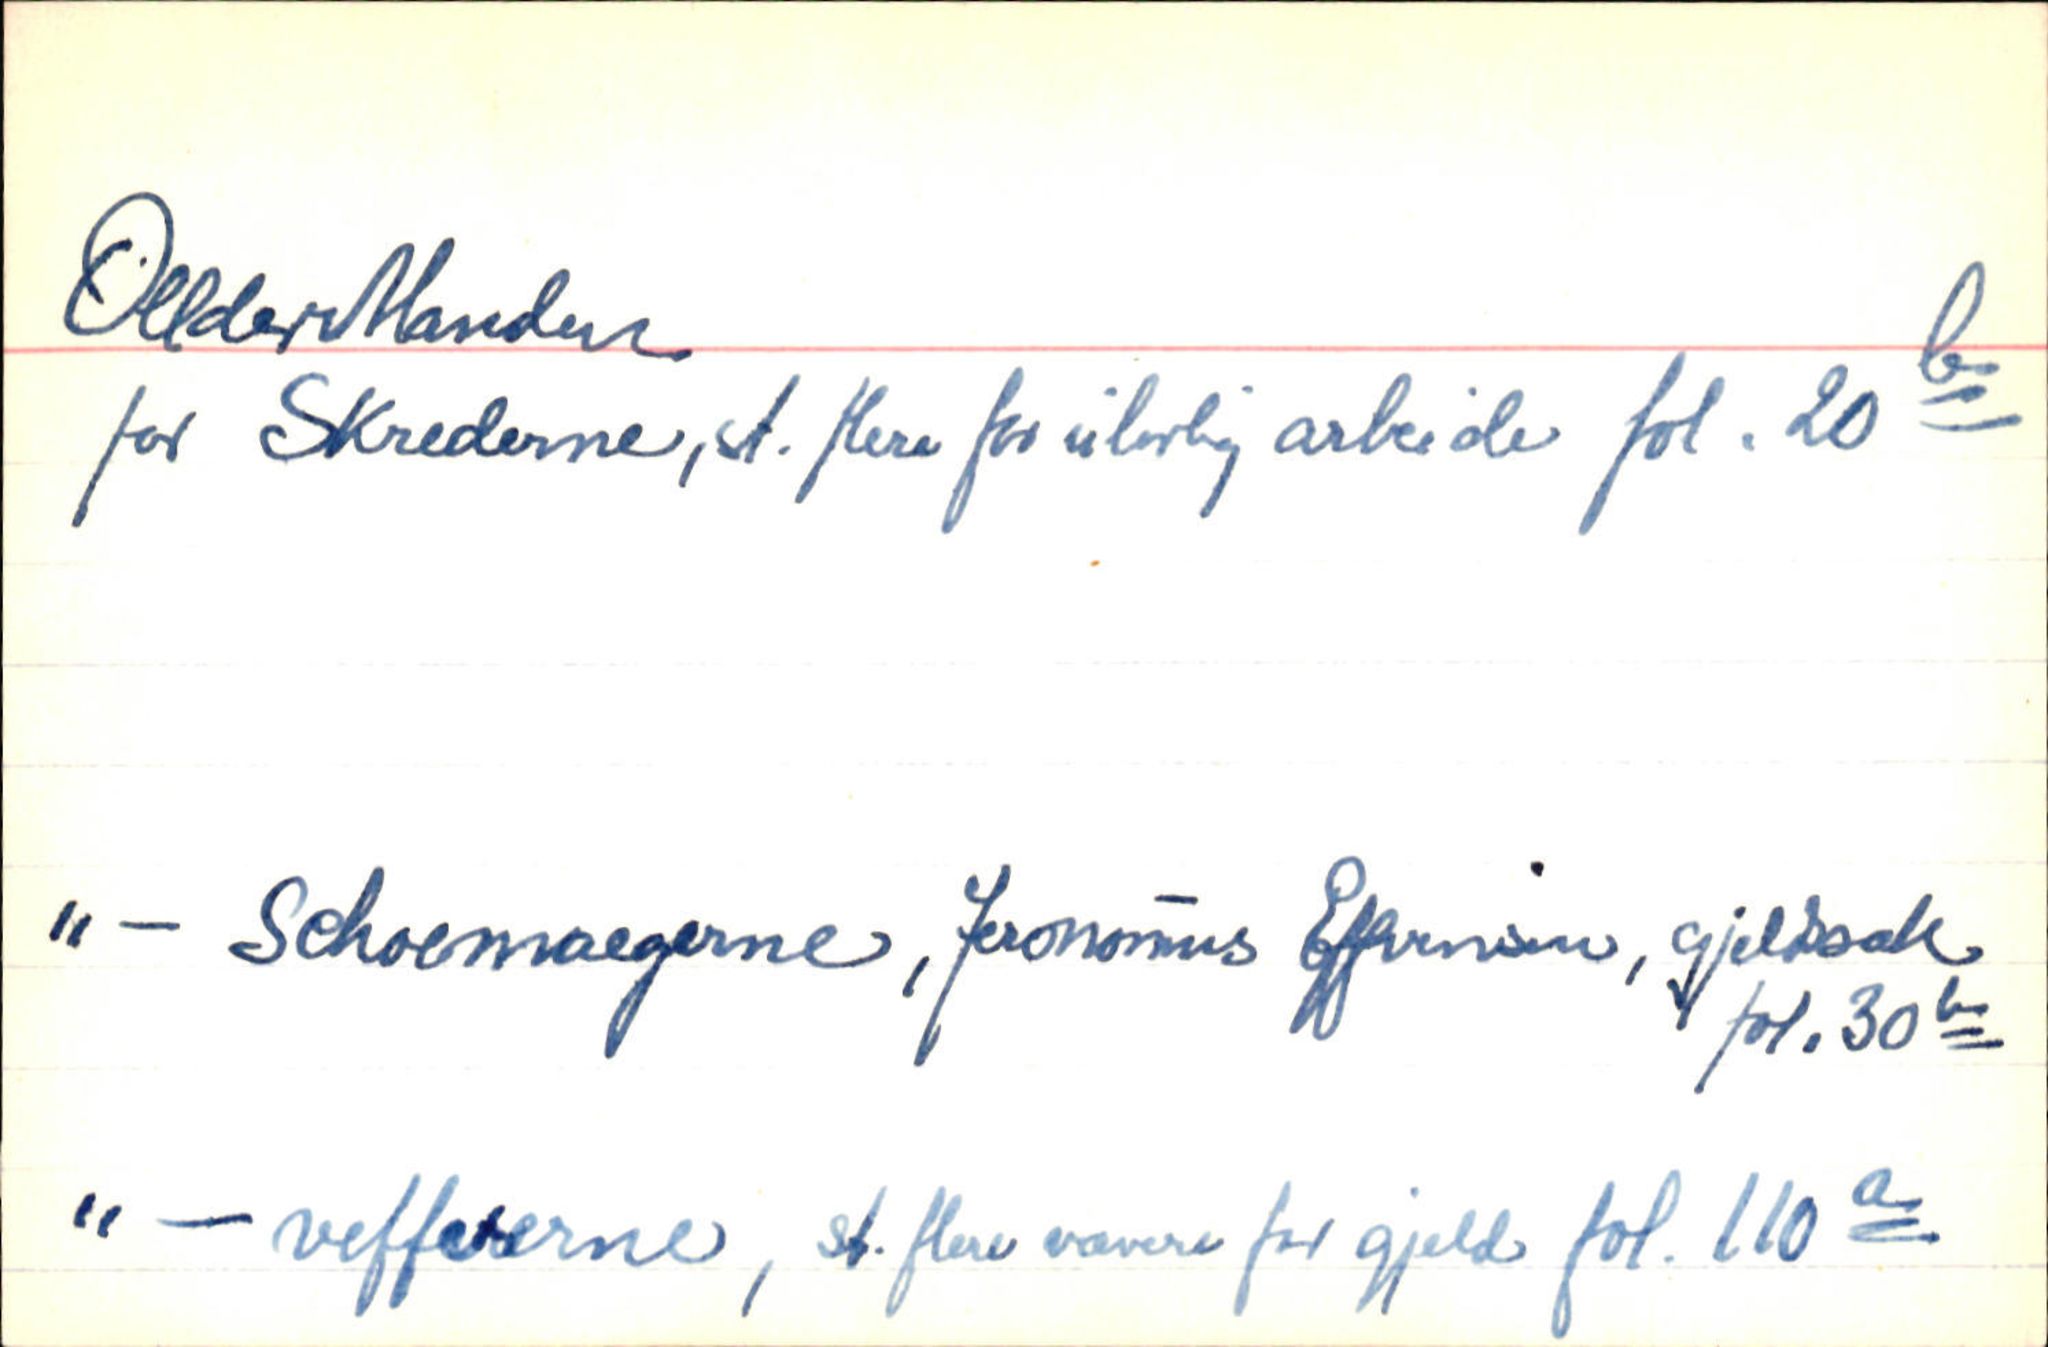 OllderManden
for Skrederne, st. flere for ulovlig arbeide fol. 20 b
" — Schoemaegerne, Jeronomus gjeldssak
fol. 30 b
" — vefferne, st. flere vævere for gjeld fol. 110 a